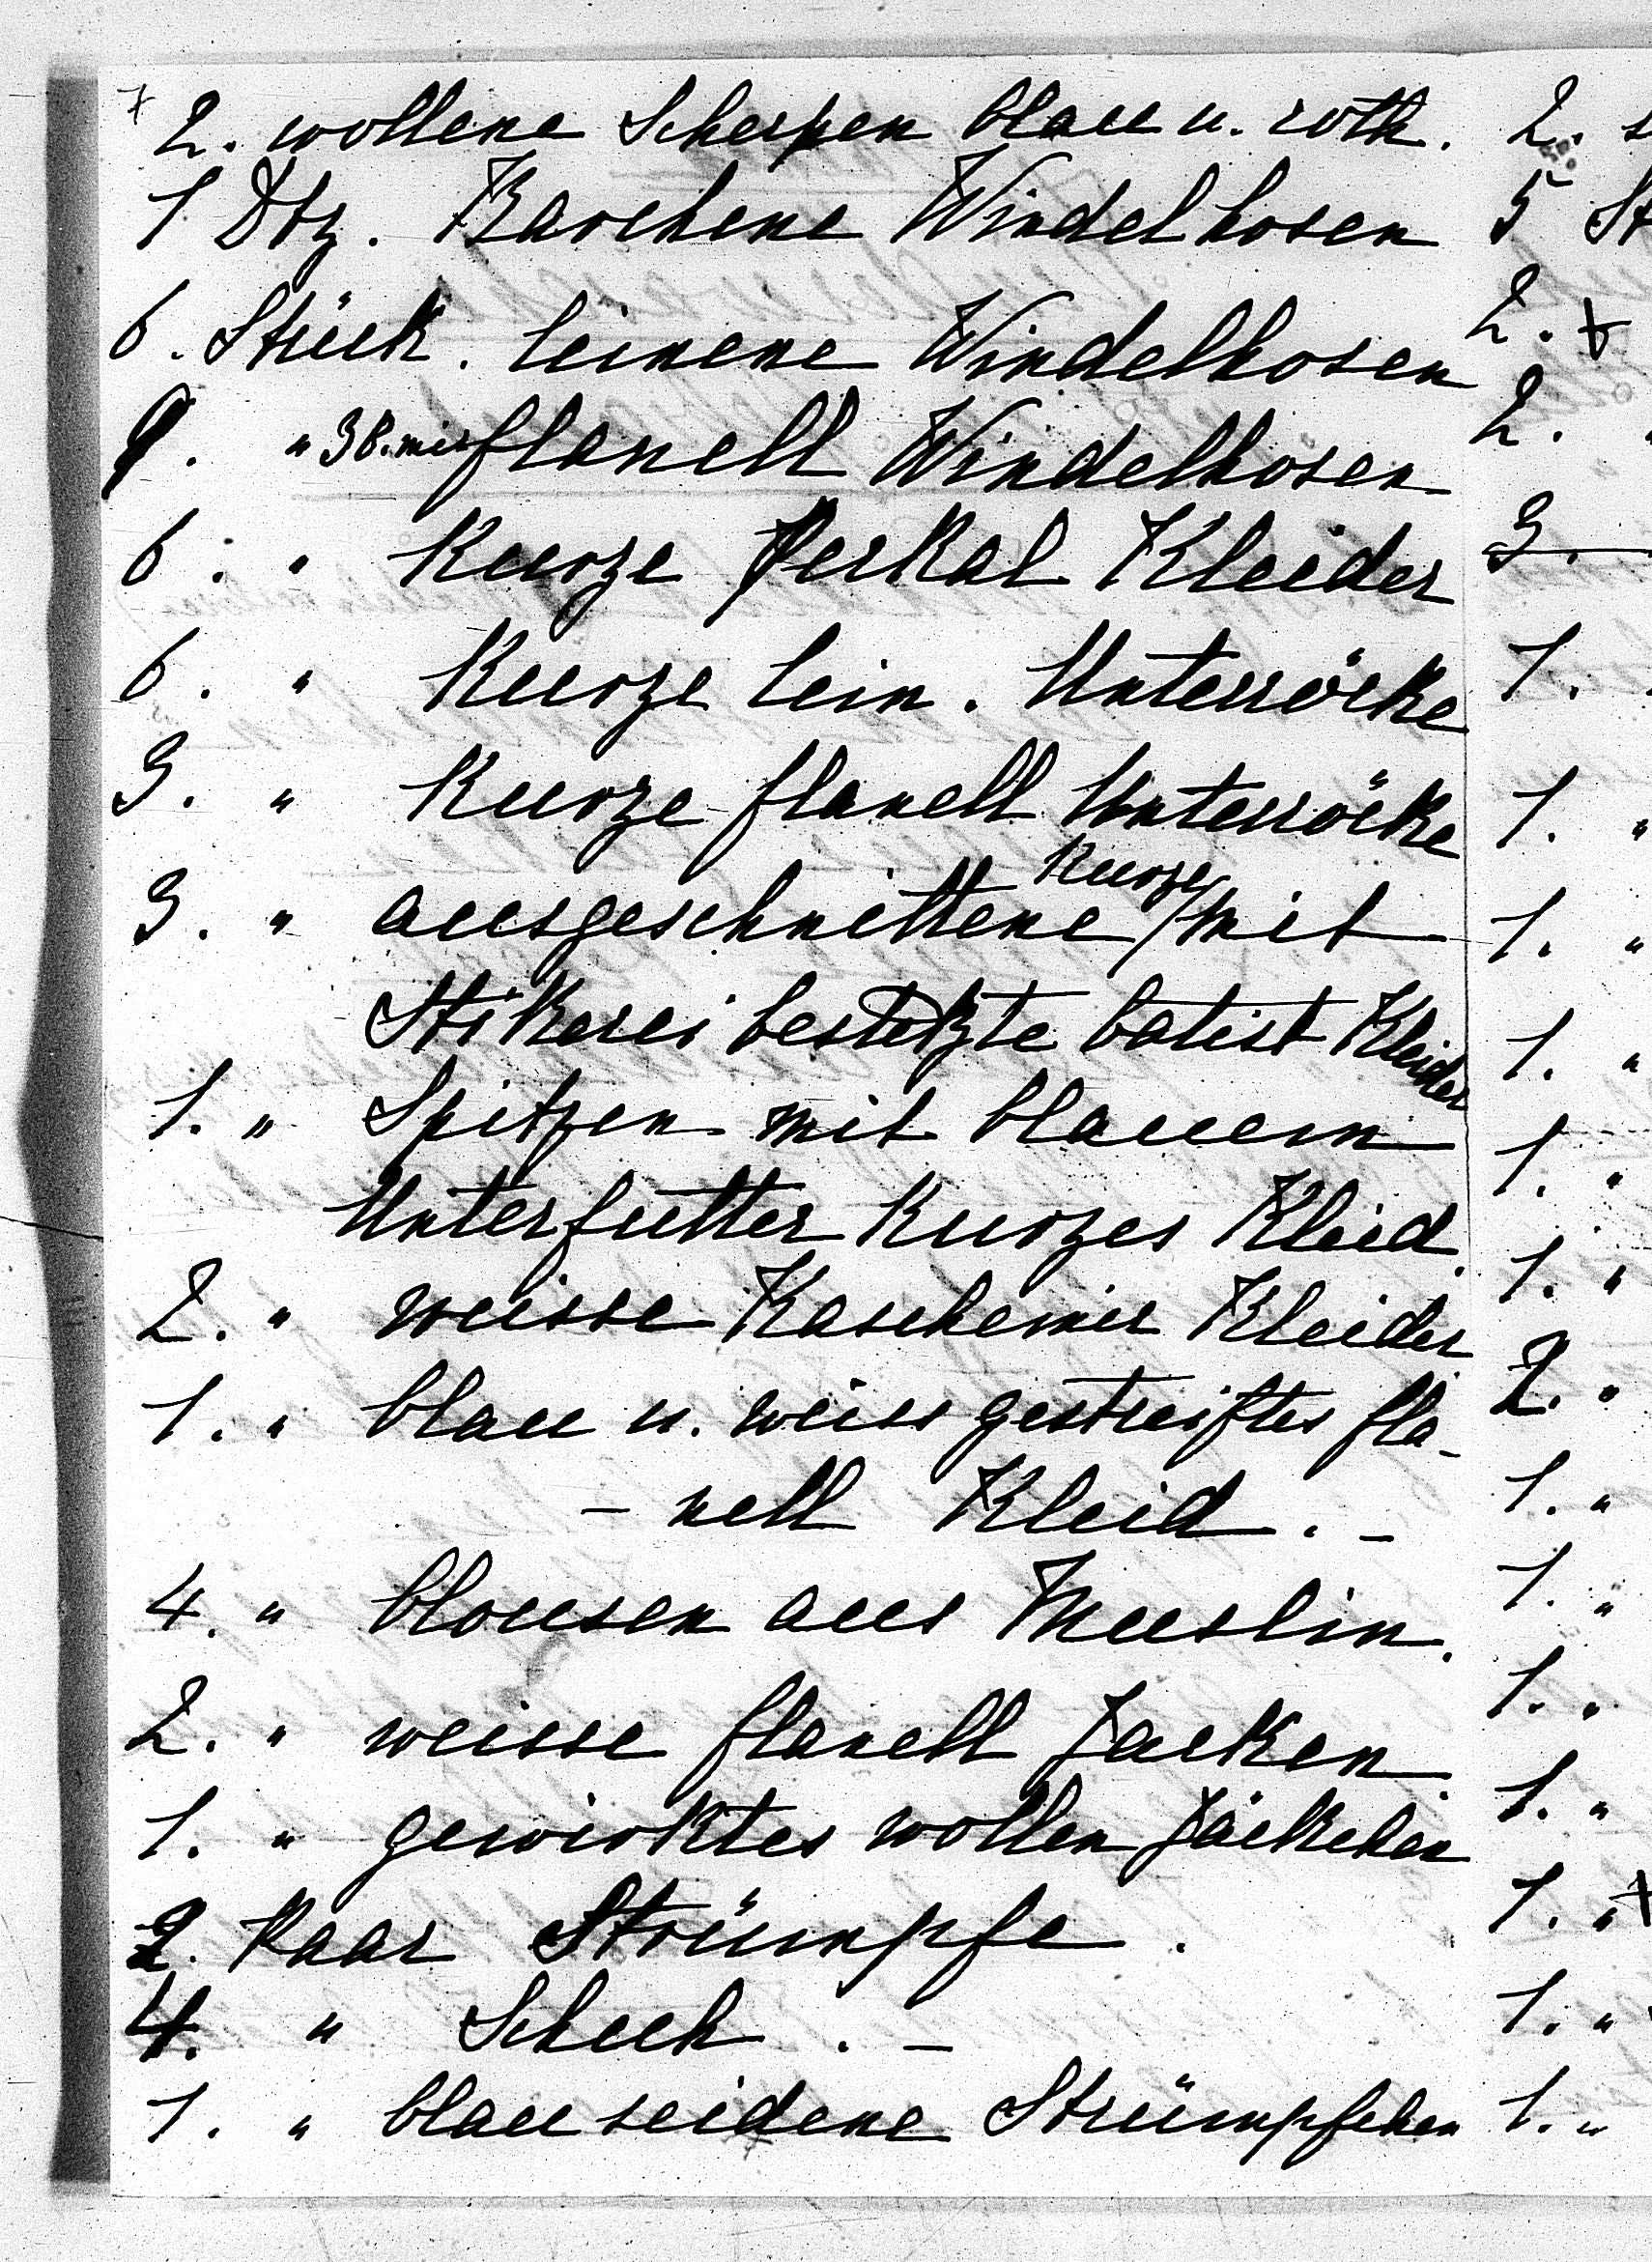 2. wollene Scherpen blau u. roth.
1 Dtz. Barchene Windelhosen
6. Stück. leinene Windelhosen
9. " 3 B. mir flanell Windelhosen
6. " Kurze Perkal Kleider
6. " Kurze lein. Unterröcke
3. " Kurze flanell Unterröcke
3. " ausgeschnittene kurze mit
Stikerei besetzte batist Kleider
1. " Spitzen mit blauem
Unterfutter Kurzes Kleid.
2. " weisse Kaschemir Kleider
1. " blau u. weiss gestreiftes fla-
- nell Kleid. -
4. " blousen aus Muslin.
2. " weisse flanell Jacken.
1. " gewirktes wollen Jäckchen
2. Paar Strümpfe.
4. " Schuh. -
1. " blau seidene Strümpfchen
2.
5 St
2.
2.
3.
1.
1. "
1. "
1. "
1. "
1. "
2. "
1. "
1. "
1. "
1. "
1. "
1. "
1. "